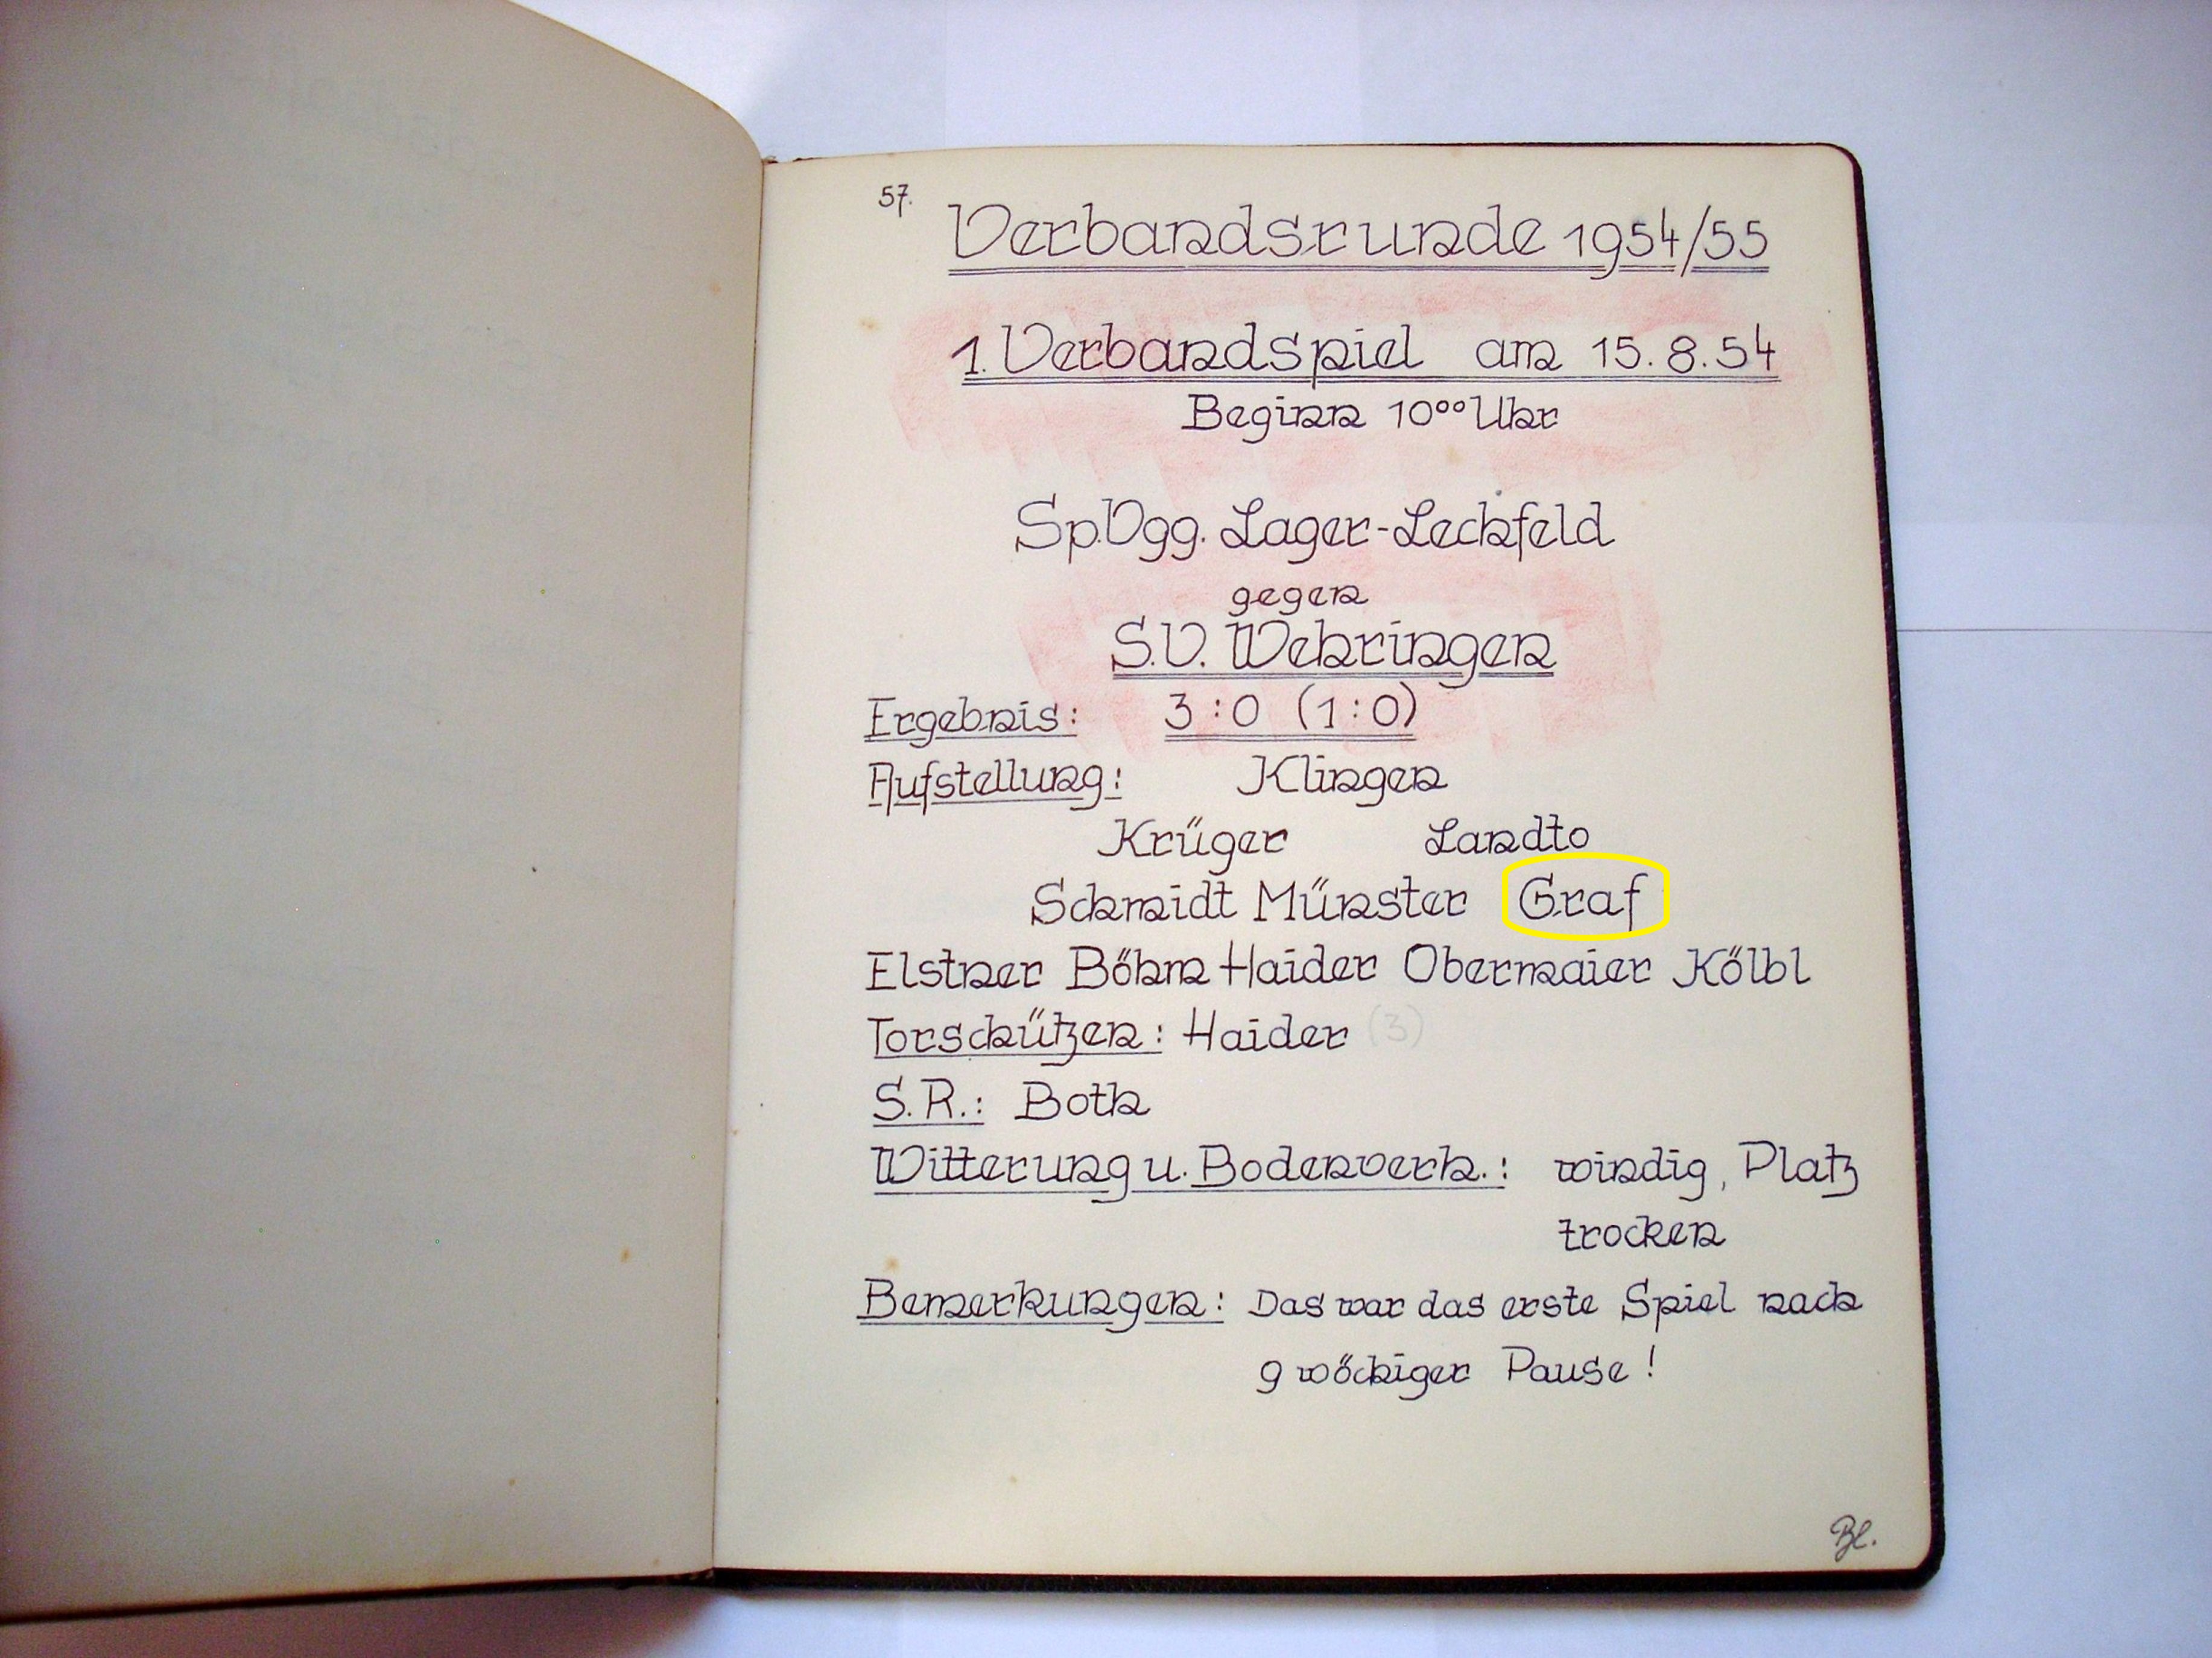 57.
Verbandsrunde 1954/55
1. Verbandspiel am 15.8.54
Beginn 10°° Uhr
Sp.Vgg. Lager-Lechfeld
gegen
S.V. Wehringen
Ergebnis: 3:0 (1:0)
Aufstellung: Klingen
Krüger Landto
Schmidt Münster Graf
Elstner Böhm Haider Obermaier Kölbl
Torschützen: Haider (3)
S.R.: Both
Witterung u. Bodenverh.: windig, Platz
trocken
Bemerkungen: Das war das erste Spiel nach
9 wöchiger Pause!